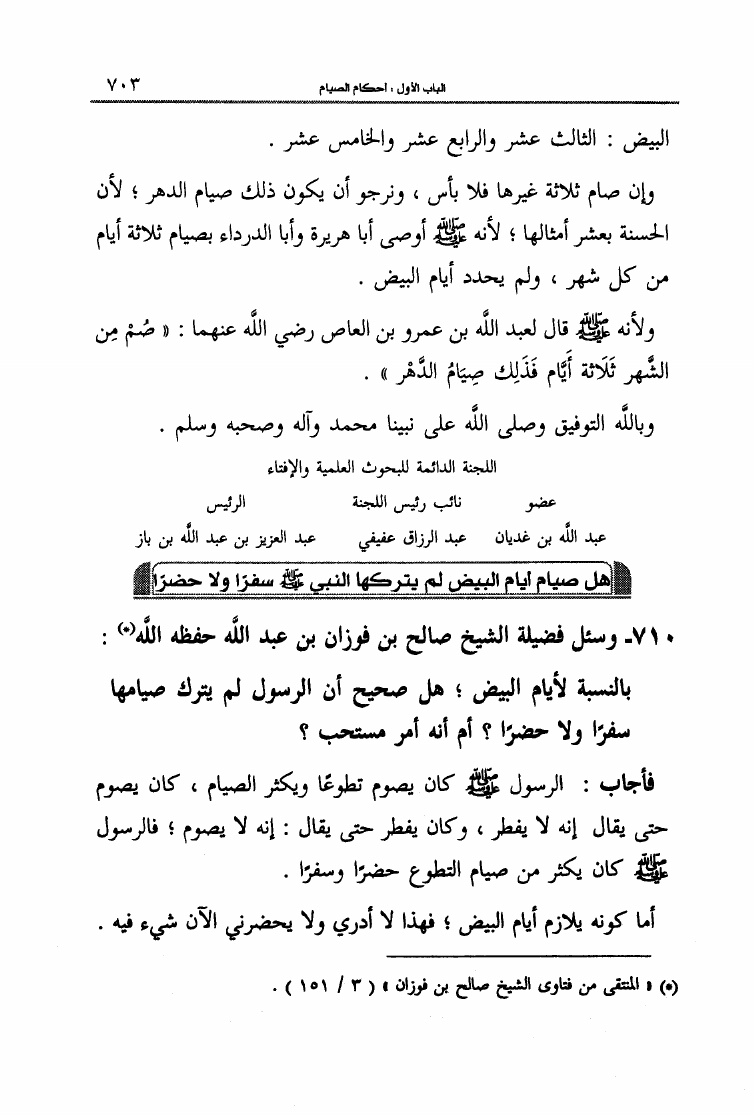 الباب الأول : أحكام الصيام ٧٠٣
البيض : الثالث عشر والرابع عشر والخامس عشر .
وإن صام ثلاثة غيرها فلا بأس ، ونرجو أن يكون ذلك صيام الدهر ؛ لأن
الحسنة بعشر أمثالها ؛ لأنه ﷺ أوصى أبا هريرة وأبا الدرداء بصيام ثلاثة أيام
من كل شهر ، ولم يحدد أيام البيض .
ولأنه ﷺ قال لعبد اللَّه بن عمرو بن العاص رضي اللَّه عنهما : « صُمْ مِن
الشَّهر ثَلَاثة أَيَّام فَذَلِك صِيَامُ الدَّهْر » .
وباللَّه التوفيق وصلى اللَّه على نبينا محمد وآله وصحبه وسلم .
اللجنة الدائمة للبحوث العلمية والإفتاء
عضو نائب رئيس اللجنة الرئيس
عبد اللَّه بن غديان عبد الرزاق عفيفي عبد العزيز بن عبد اللَّه بن باز
هل صيام أيام البيض لم يتركها النبي ﷺ سفرًا ولا حضرًا
٧١٠- وسئل فضيلة الشيخ صالح بن فوزان بن عبد اللَّه حفظه اللَّه(*) :
بالنسبة لأيام البيض ؛ هل صحيح أن الرسول لم يترك صيامها
سفرًا ولا حضرًا ؟ أم أنه أمر مستحب ؟
فأجاب : الرسول ﷺ كان يصوم تطوعًا ويكثر الصيام ، كان يصوم
حتى يقال إنه لا يفطر ، وكان يفطر حتى يقال : إنه لا يصوم ؛ فالرسول
ﷺ كان يكثر من صيام التطوع حضرًا وسفرًا .
أما كونه يلازم أيام البيض ؛ فهذا لا أدري ولا يحضرني الآن شيء فيه .
(*) « المنتقى من فتاوى الشيخ صالح بن فوزان » ( ٣ / ١٥١ ) .